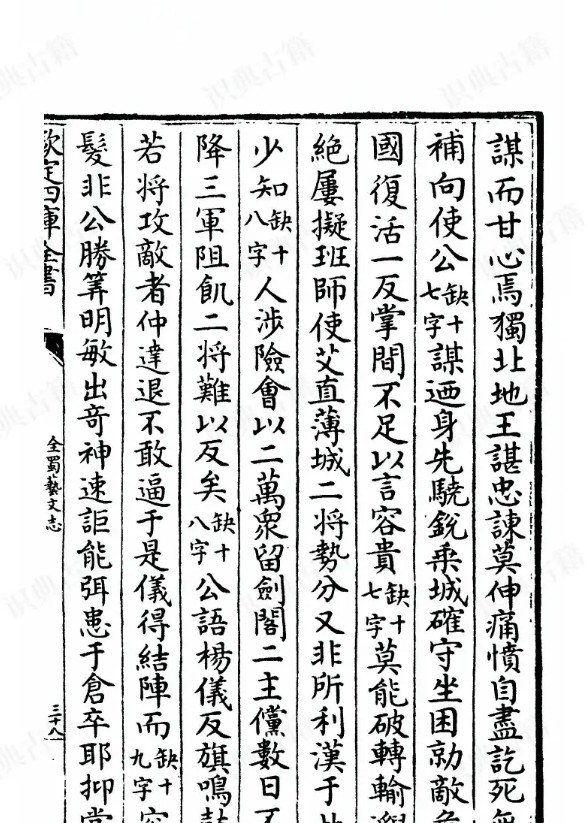 謀而甘心焉獨北地王諶忠諫莫伸痛憤自盡訖死
補向使公缺十七字謀迺身先驍銳乘城確守坐困勍敵
國復活一反掌間不足以言容貴缺十七字莫能破轉輸
絶屢擬班師使艾直薄城二将勢分又非所利漢于
少知缺十八字人渉險會以二萬衆留劍閣二主儻數日不
降三軍阻飢二将難以反矣缺十八字公語楊儀反旗鳴鼓
若将攻敵者仲達退不敢逼于是儀得結陣而缺十九字
髮非公勝筭明敏出竒神速詎能弭患于倉卒耶抑
欽定四庫全書
全蜀藝文志
三十八
识典古籍